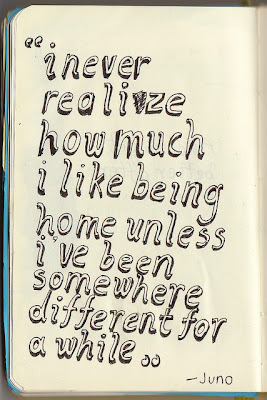 “i never
realize
how much
i like being
home unless
i've been
somewhere
different for
a while”
—Juno